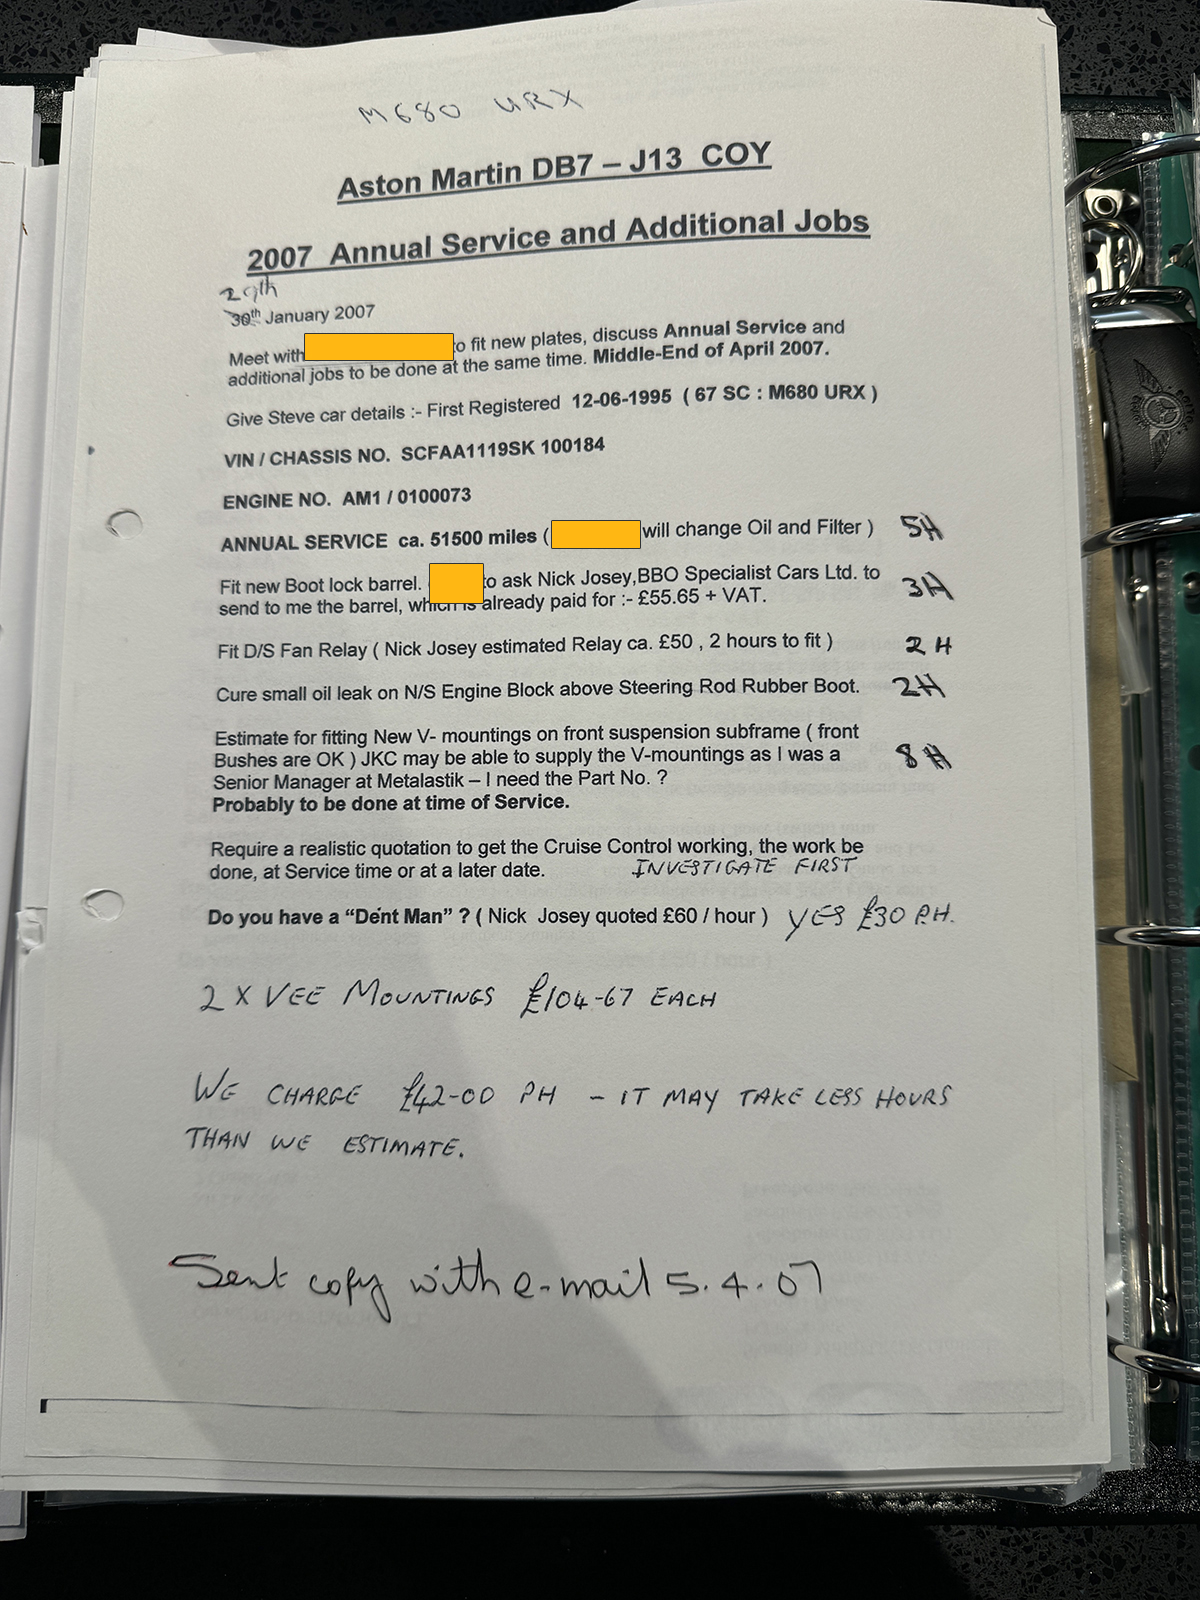 M680 URX
Aston Martin DB7 – J13 COY
2007 Annual Service and Additional Jobs
29th
30th January 2007
Meet with to fit new plates, discuss Annual Service and
additional jobs to be done at the same time. Middle-End of April 2007.
Give Steve car details :- First Registered 12-06-1995 ( 67 SC : M680 URX )
VIN / CHASSIS NO. SCFAA1119SK 100184
ENGINE NO. AM1 / 0100073
ANNUAL SERVICE ca. 51500 miles ( will change Oil and Filter ) 5H
Fit new Boot lock barrel. to ask Nick Josey,BBO Specialist Cars Ltd. to
send to me the barrel, which is already paid for :- £55.65 + VAT. 3H
Fit D/S Fan Relay ( Nick Josey estimated Relay ca. £50 , 2 hours to fit ) 2H
Cure small oil leak on N/S Engine Block above Steering Rod Rubber Boot. 2H
Estimate for fitting New V- mountings on front suspension subframe ( front
Bushes are OK ) JKC may be able to supply the V-mountings as I was a 8H
Senior Manager at Metalastik – I need the Part No. ?
Probably to be done at time of Service.
Require a realistic quotation to get the Cruise Control working, the work be
done, at Service time or at a later date. INVESTIGATE FIRST
Do you have a “Dent Man” ? ( Nick Josey quoted £60 / hour ) YES £30 P.H.
2 X VEE MOUNTINGS £104-67 EACH
WE CHARGE £42-00 PH – IT MAY TAKE LESS HOURS
THAN WE ESTIMATE.
Sent copy with e-mail 5.4.07